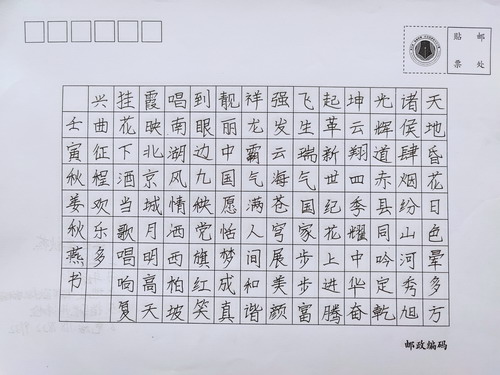 邮政编码
贴邮
票处
天地昏花日色晕多方
诸侯肆烟纷山河秀旭
光辉道赤县同吟定乾
坤云翔四季耀中华奋
起革新世纪花上进腾
飞生瑞气国家步步富
强发云海苍穹展美颜
祥龙霸气满人间和谐
靓丽中国愿怡梦成真
到眼边九秧党旗红笑
唱南湖风情洒西柏坡
霞映北京城月明高天
挂花下洒当歌唱响复
兴曲征程欢乐多
壬寅秋娄秋燕书